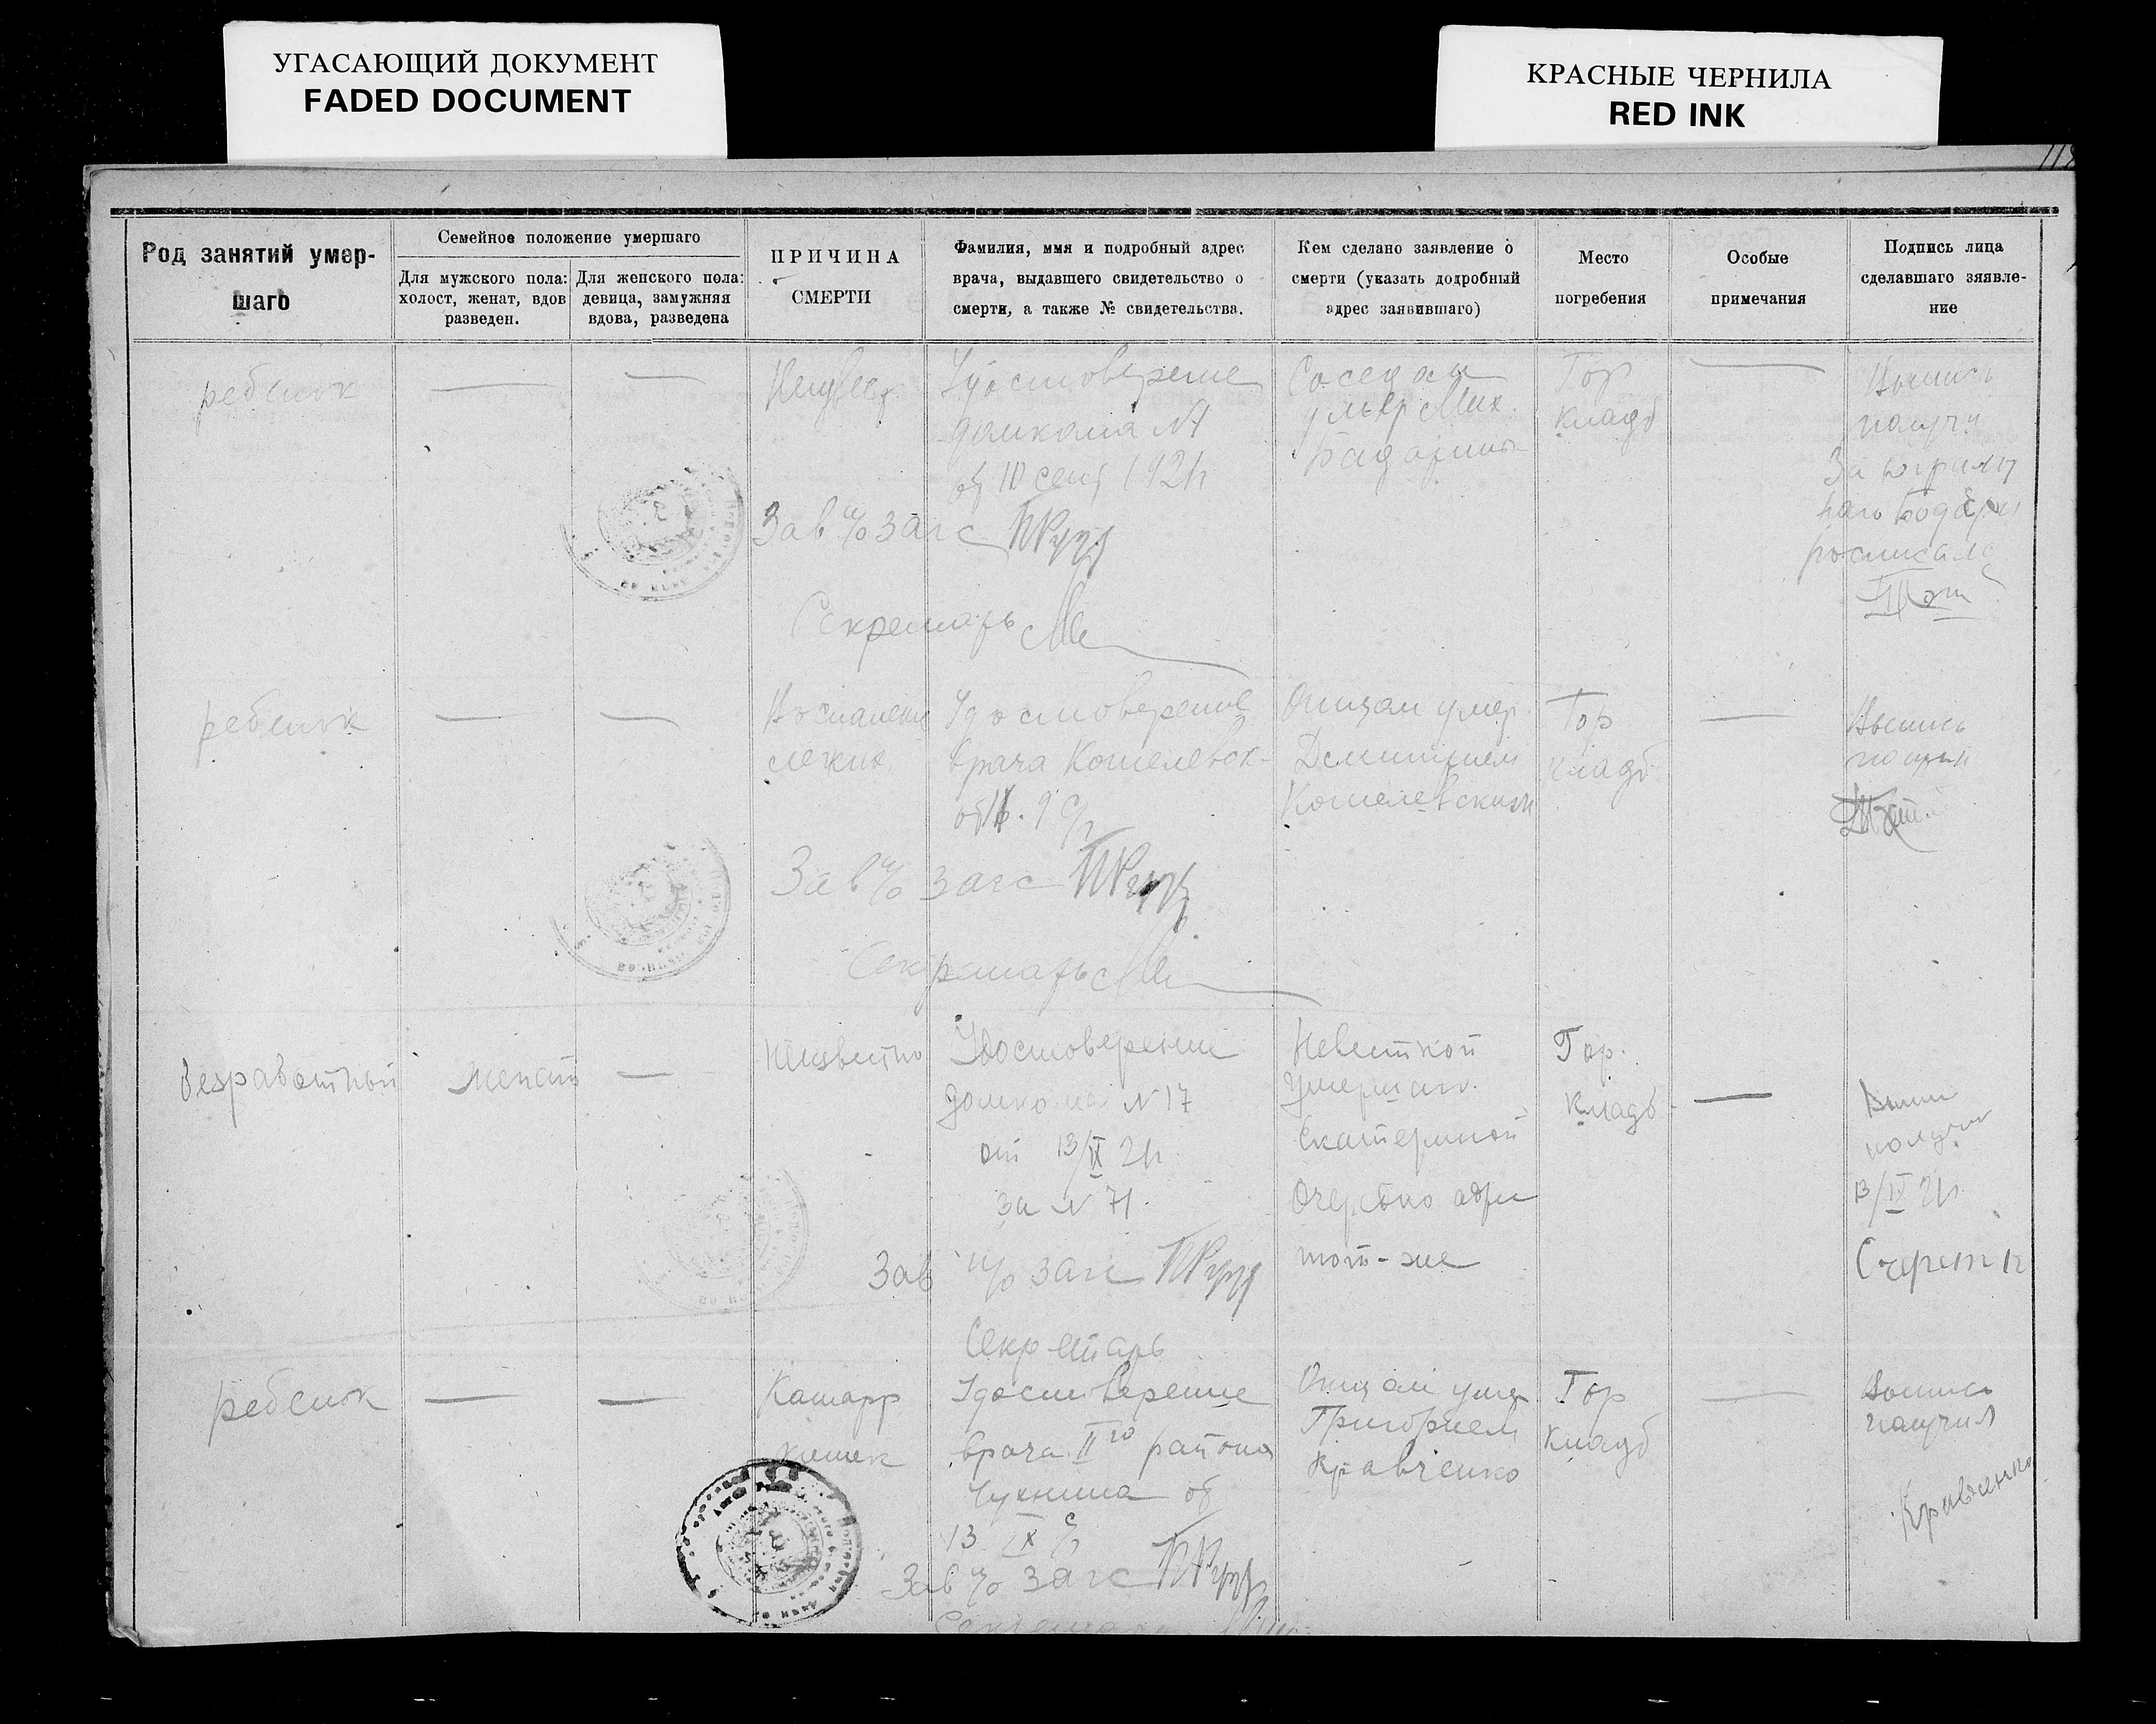 УГАСАЮЩИЙ ДОКУМЕНТ
FADED DOCUMENT
КРАСНЫЕ ЧЕРНИЛА
RED INK
118
Род занятий умер-
шаго
Семейное положение умершаго
Для мужского пола:
холост, женат, вдов
разведен.
Для женского пола:
девица, замужняя
вдова, разведена
ПРИЧИНА
СМЕРТИ
Фамилия, ммя и подробный адрес
врача, выдавшего свидетельство о
смерти, а также № свидетельства.
Кем сделано заявление о
смерти (указать додробный
адрес заявившаго)
Место
погребения
Особые
примечания
Подпись лица
сделавшаго зяявле-
ние
ребенок
—
—
Неизвест
Удостоверение
домкома №
от 10 сент 1921г
Соседом
умер Мих.
Гор
кладб
—
Выпись
получ
За неграмот
наго
росписался
Зав п/о загс
Секретарь
ребенок
—
—
Воспаление
легких
Удостоверение
врача Кошелевск-
от 9 с/г
Отцом умер.
Дмитрием
Кошелевским
Гор
кладб
—
Выпись
получил
Зав п/о загс
Секретарь
Безработный
женат
—
Неизвестно
Удостоверение
домкома № 17
от 13/IX 21г
за № 71.
Невесткой
умершаго
Екатериной
адрес
тот-же
Гор.
кладб-
—
Выпись
получил
13/IX 21г.
Зав п/о загс
Секретарь
ребенок
—
—
Катарр
кишек
Удостоверение
врача II го района
от
13 IX с/г
Отцом умер
Григорием
Кравченко
Гор
кладб
—
Выпись
получил
Кравченко
Зав п/о загс
Секретарь